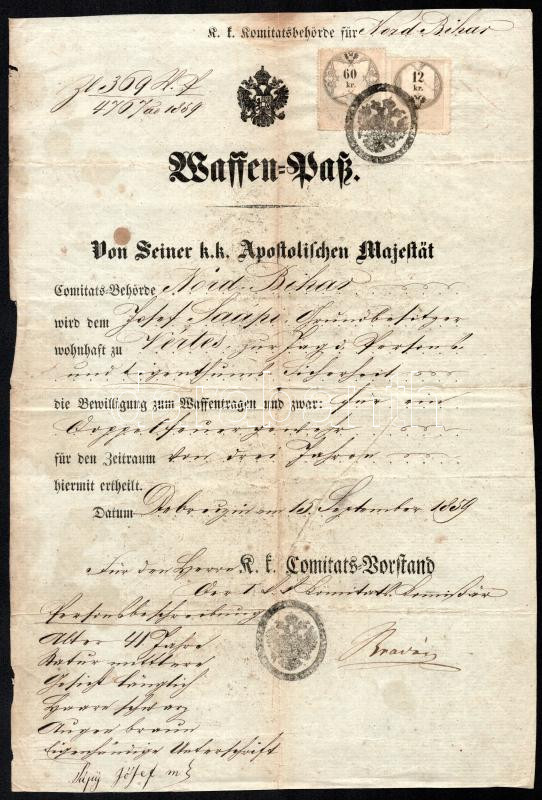 K. k. Komitatsbehörde für Nord Bihar
Zl 369
476 1859
60
kr.
12
kr.
Waffen=Paß.
Von Seiner k.k. Apostolischen Majestät
Comitats=Behörde Nord Bihar
wird dem Josef Grundbesitzer
wohnhaft zu Vértes zur Jagd Person
und Eigenthums Sicherheit
die Bewilligung zum Waffentragen und zwar: für ein
Doppelfeuergewehr
für den Zeitraum von drei Jahren
hiermit ertheilt.
Datum Debreczin am 15. September 1859
Für den Herrn K. k. Comitats=Vorstand
Der Komitats Komissär
Personsbeschreibung
Alter 41 Jahre
Statur mittlere
Gesicht länglich
Haare schwarz
Augen braun
Eigenhändige Unterschrift
József